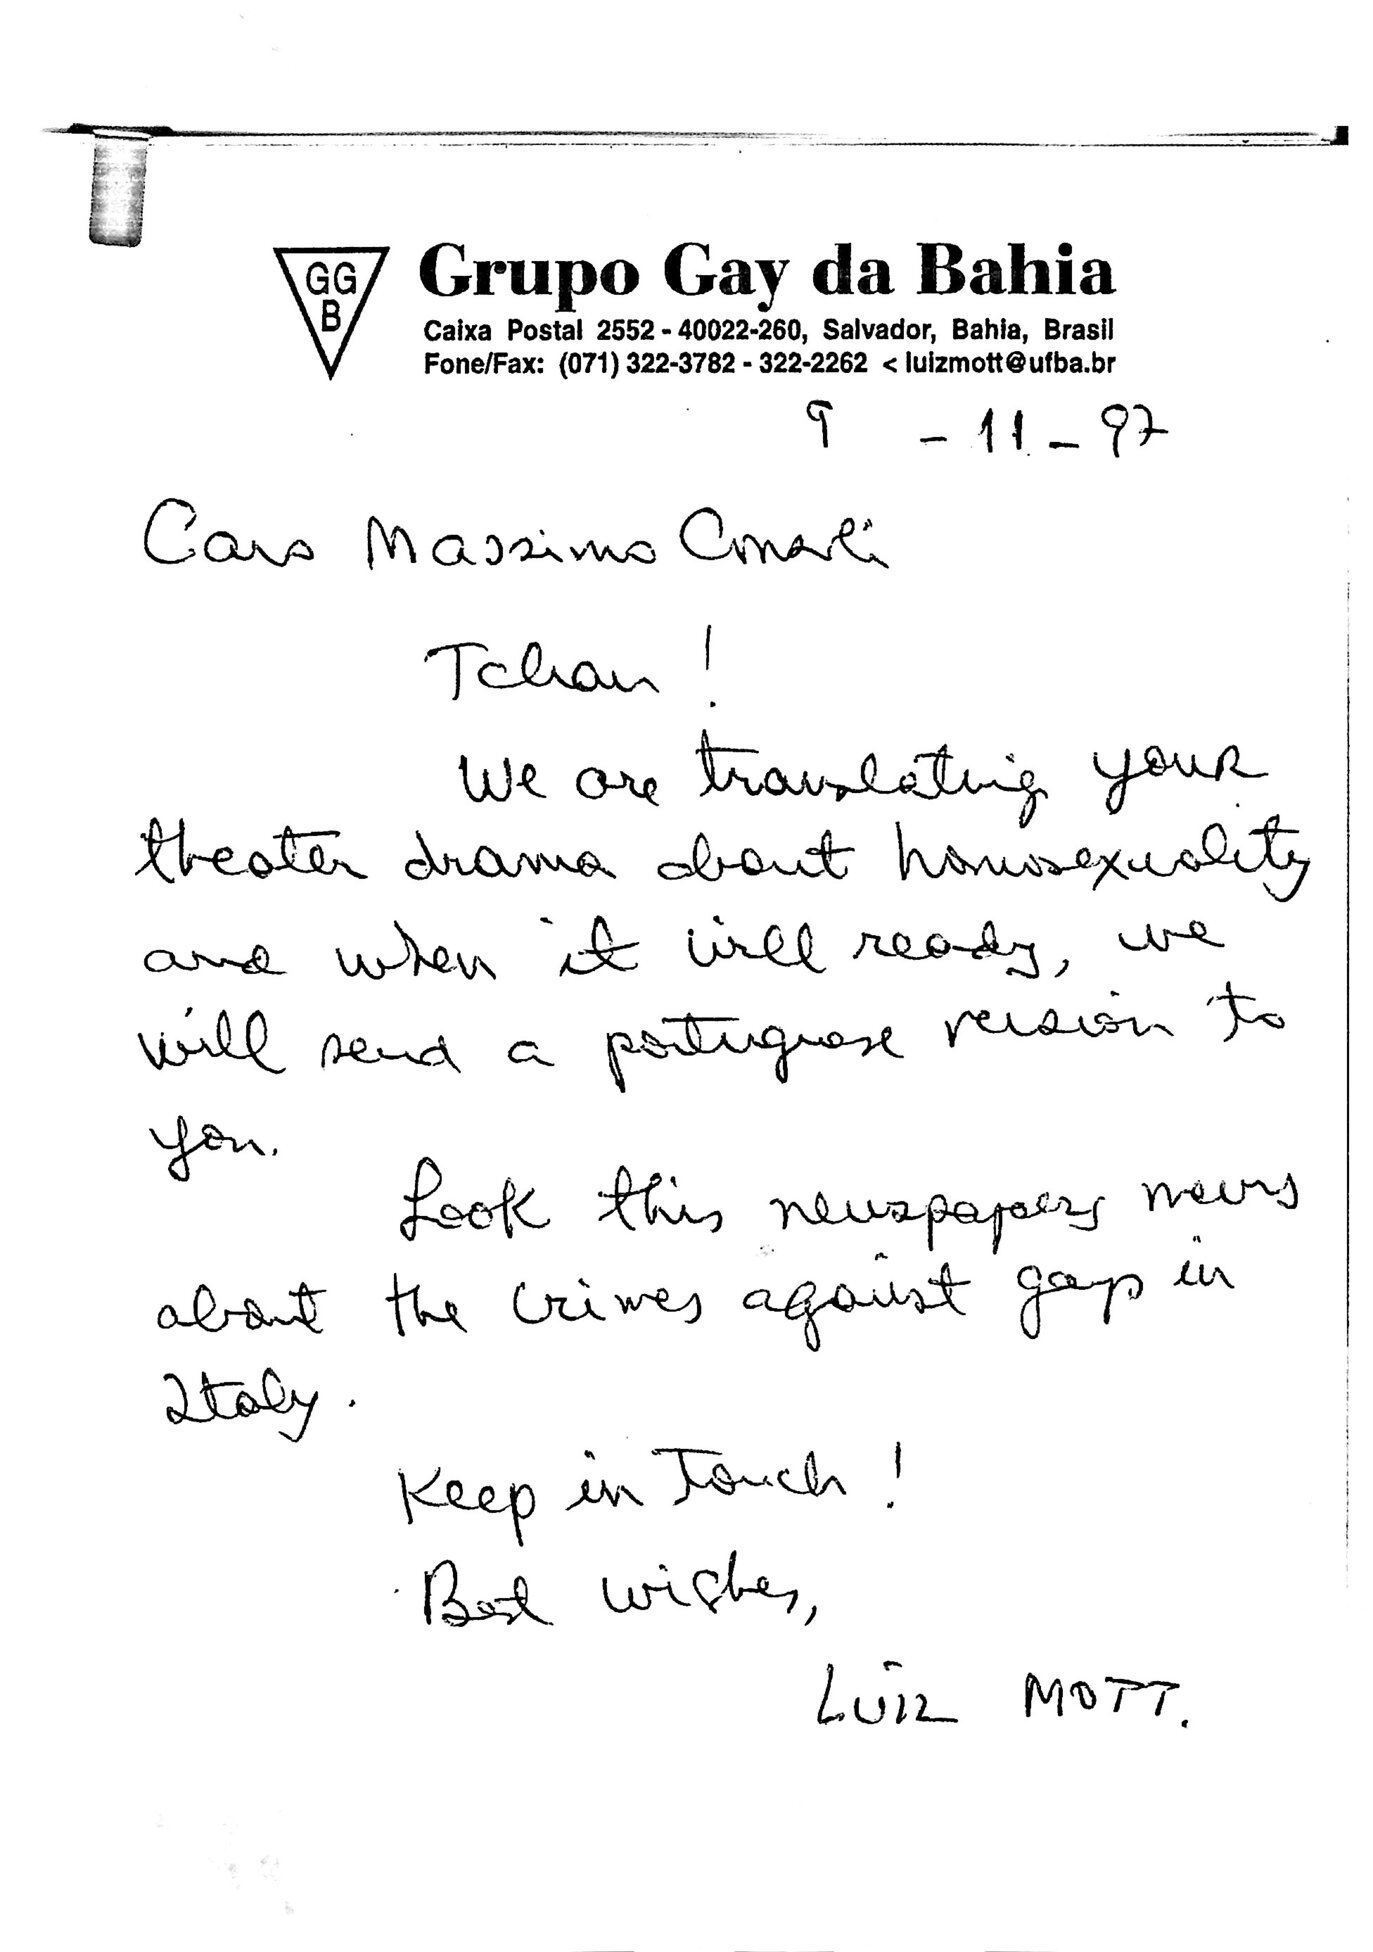 GG
B
Grupo Gay da Bahia
Caixa Postal 2552 - 40022-260, Salvador, Bahia, Brasil
Fone/Fax: (071) 322-3782 - 322-2262 < luizmott@ufba.br
9 - 11 - 97
Caro Massimo Consoli
Tchau !
We are translating your
theater drama about homosexuality
and when it will ready, we
will send a portuguese version to
you.
Look this newspapers news
about the crimes against gays in
Italy.
Keep in Touch !
Best wishes,
LUIZ MOTT.